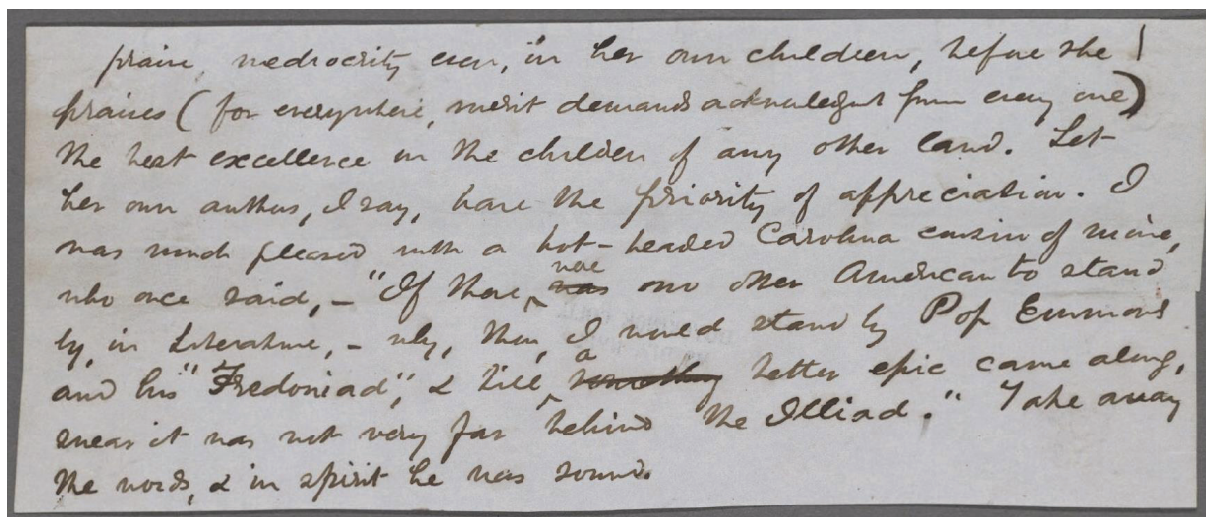 praise mediocrity even, in her own children, before she
praises (for everywhere, merit demands acknowledgmt from every one)
the best excellence in the children of any other land. Let
her own authors, I say, have the priority of appreciation. I
was much pleased with a hot-headed Carolina cousin of mine,
who once said, — "If there were no other American to stand
by, in Literature, — why, then, I would stand by Pop Emmons
and his "Fredoniad", & till a better epic came along,
swear it was not very far behind the Illiad." Take away
the words, & in spirit he was sound.